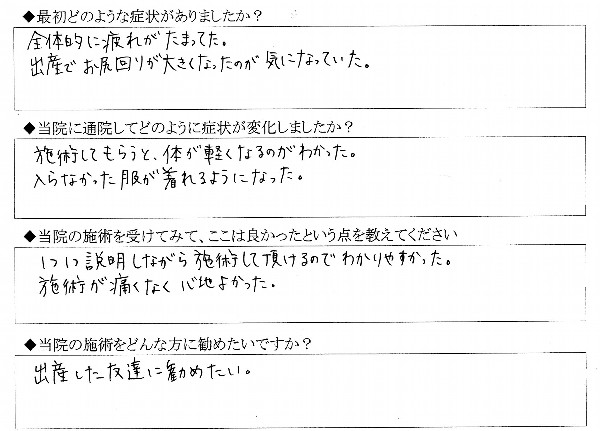 ◆最初どのような症状がありましたか？
全体的に疲れがたまってた。
出産でお尻回りが大きくなったのが気になっていた。
◆当院に通院してどのように症状が変化しましたか？
施術してもらうと、体が軽くなるのがわかった。
入らなかった服が着れるようになった。
◆当院の施術を受けてみて、ここは良かったという点を教えてください
1つ1つ説明しながら施術して頂けるのでわかりやすかった。
施術が痛くなく心地よかった。
◆当院の施術をどんな方に勧めたいですか？
出産した友達に勧めたい。